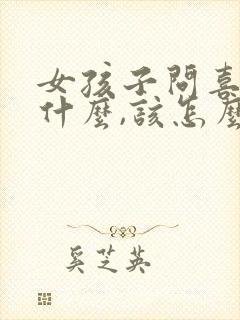 女孩子問喜
什麼,該怎麼
奚芝英